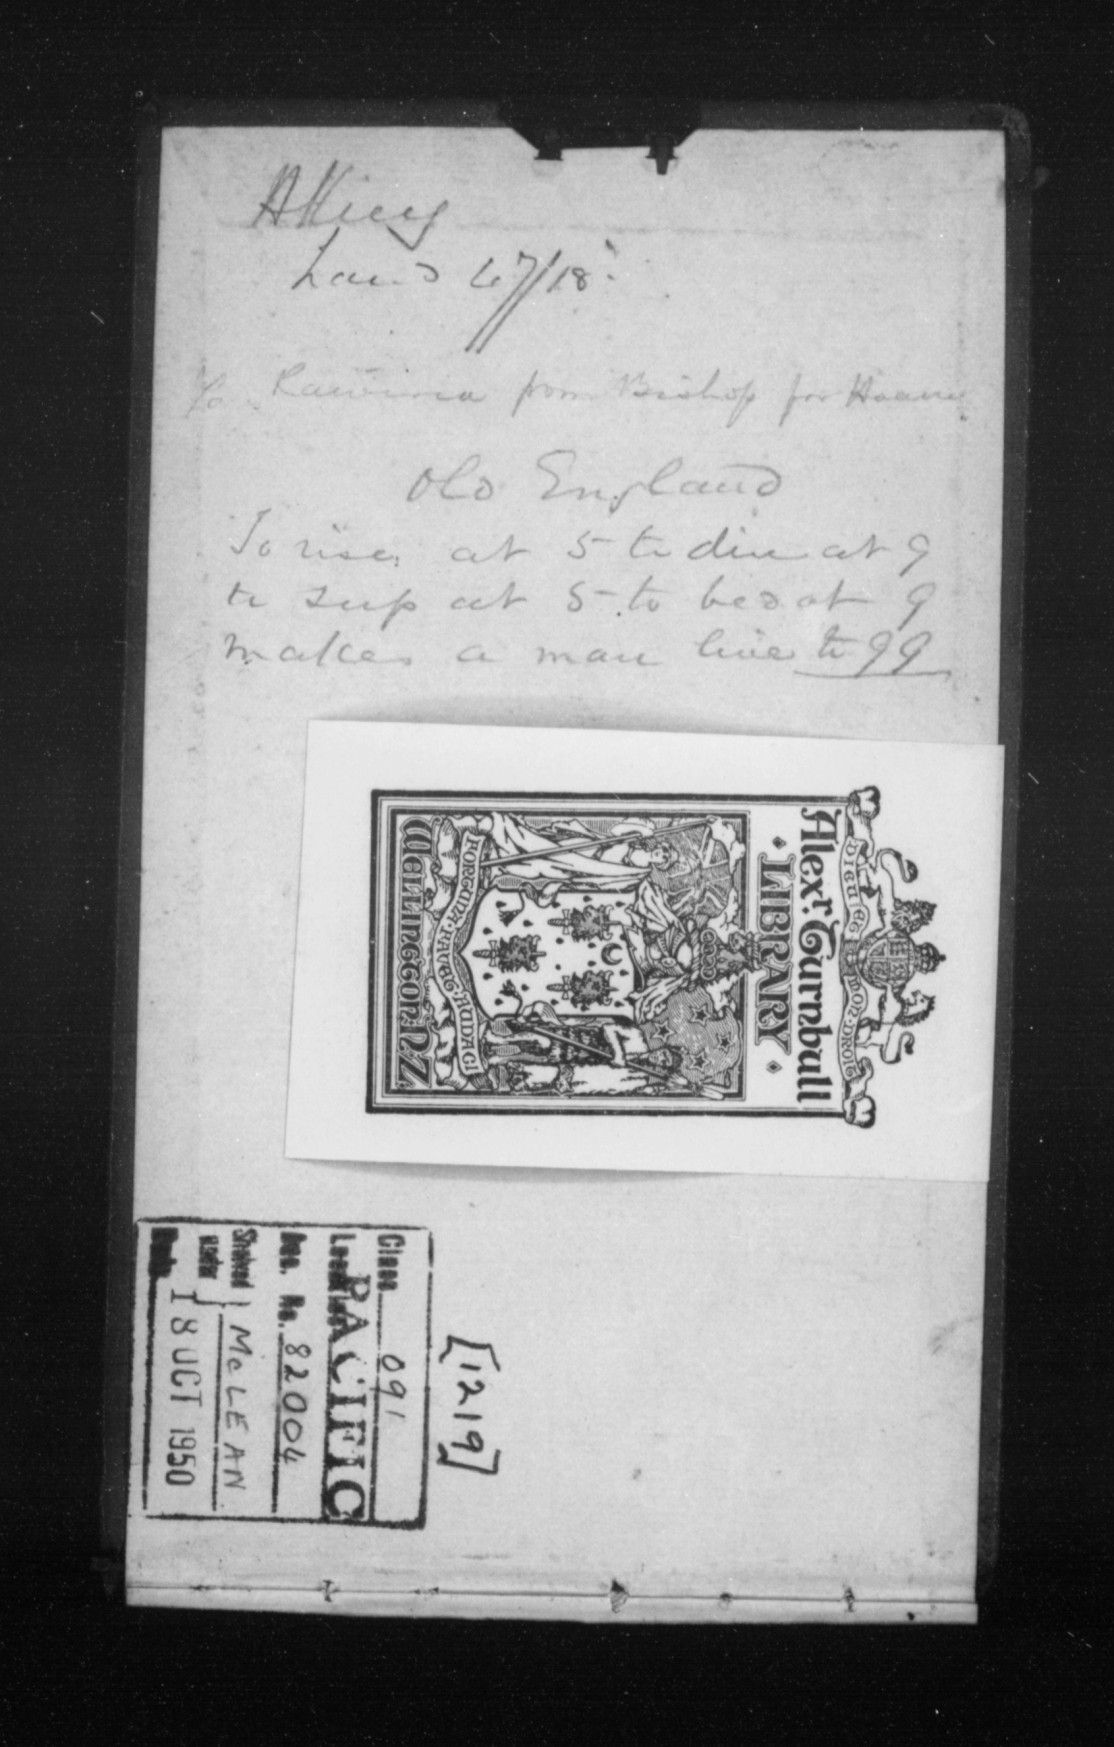 Land 47/18
from Bishop for
Old England
To rise at 5 to dine at 9
to sup at 5 to bed at 9
makes a man live to 99
DIEU ET MON DROIT
Alexr. Turnbull
LIBRARY
FORTUNA FAVET AUDACI
Wellington N.Z.
Class 091
PACIFIC
Acc. No. 82004
Shelved under } McLEAN
Date 18 OCT 1950
[1219]